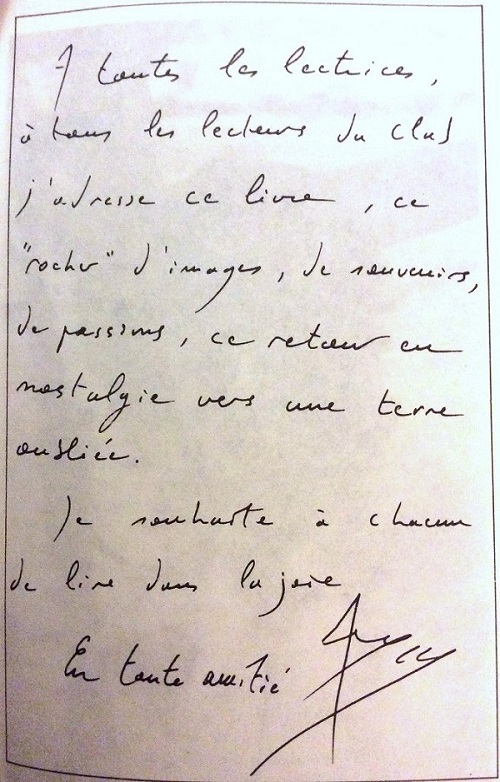 A toutes les lectrices,
à tous les lecteurs du club
j'adresse ce livre, ce
"rocher" d'images, de souvenirs,
de passions, ce retour en
nostalgie vers une terre
oubliée.
Je souhaite à chacun
de lire dans la joie
En toute amitié